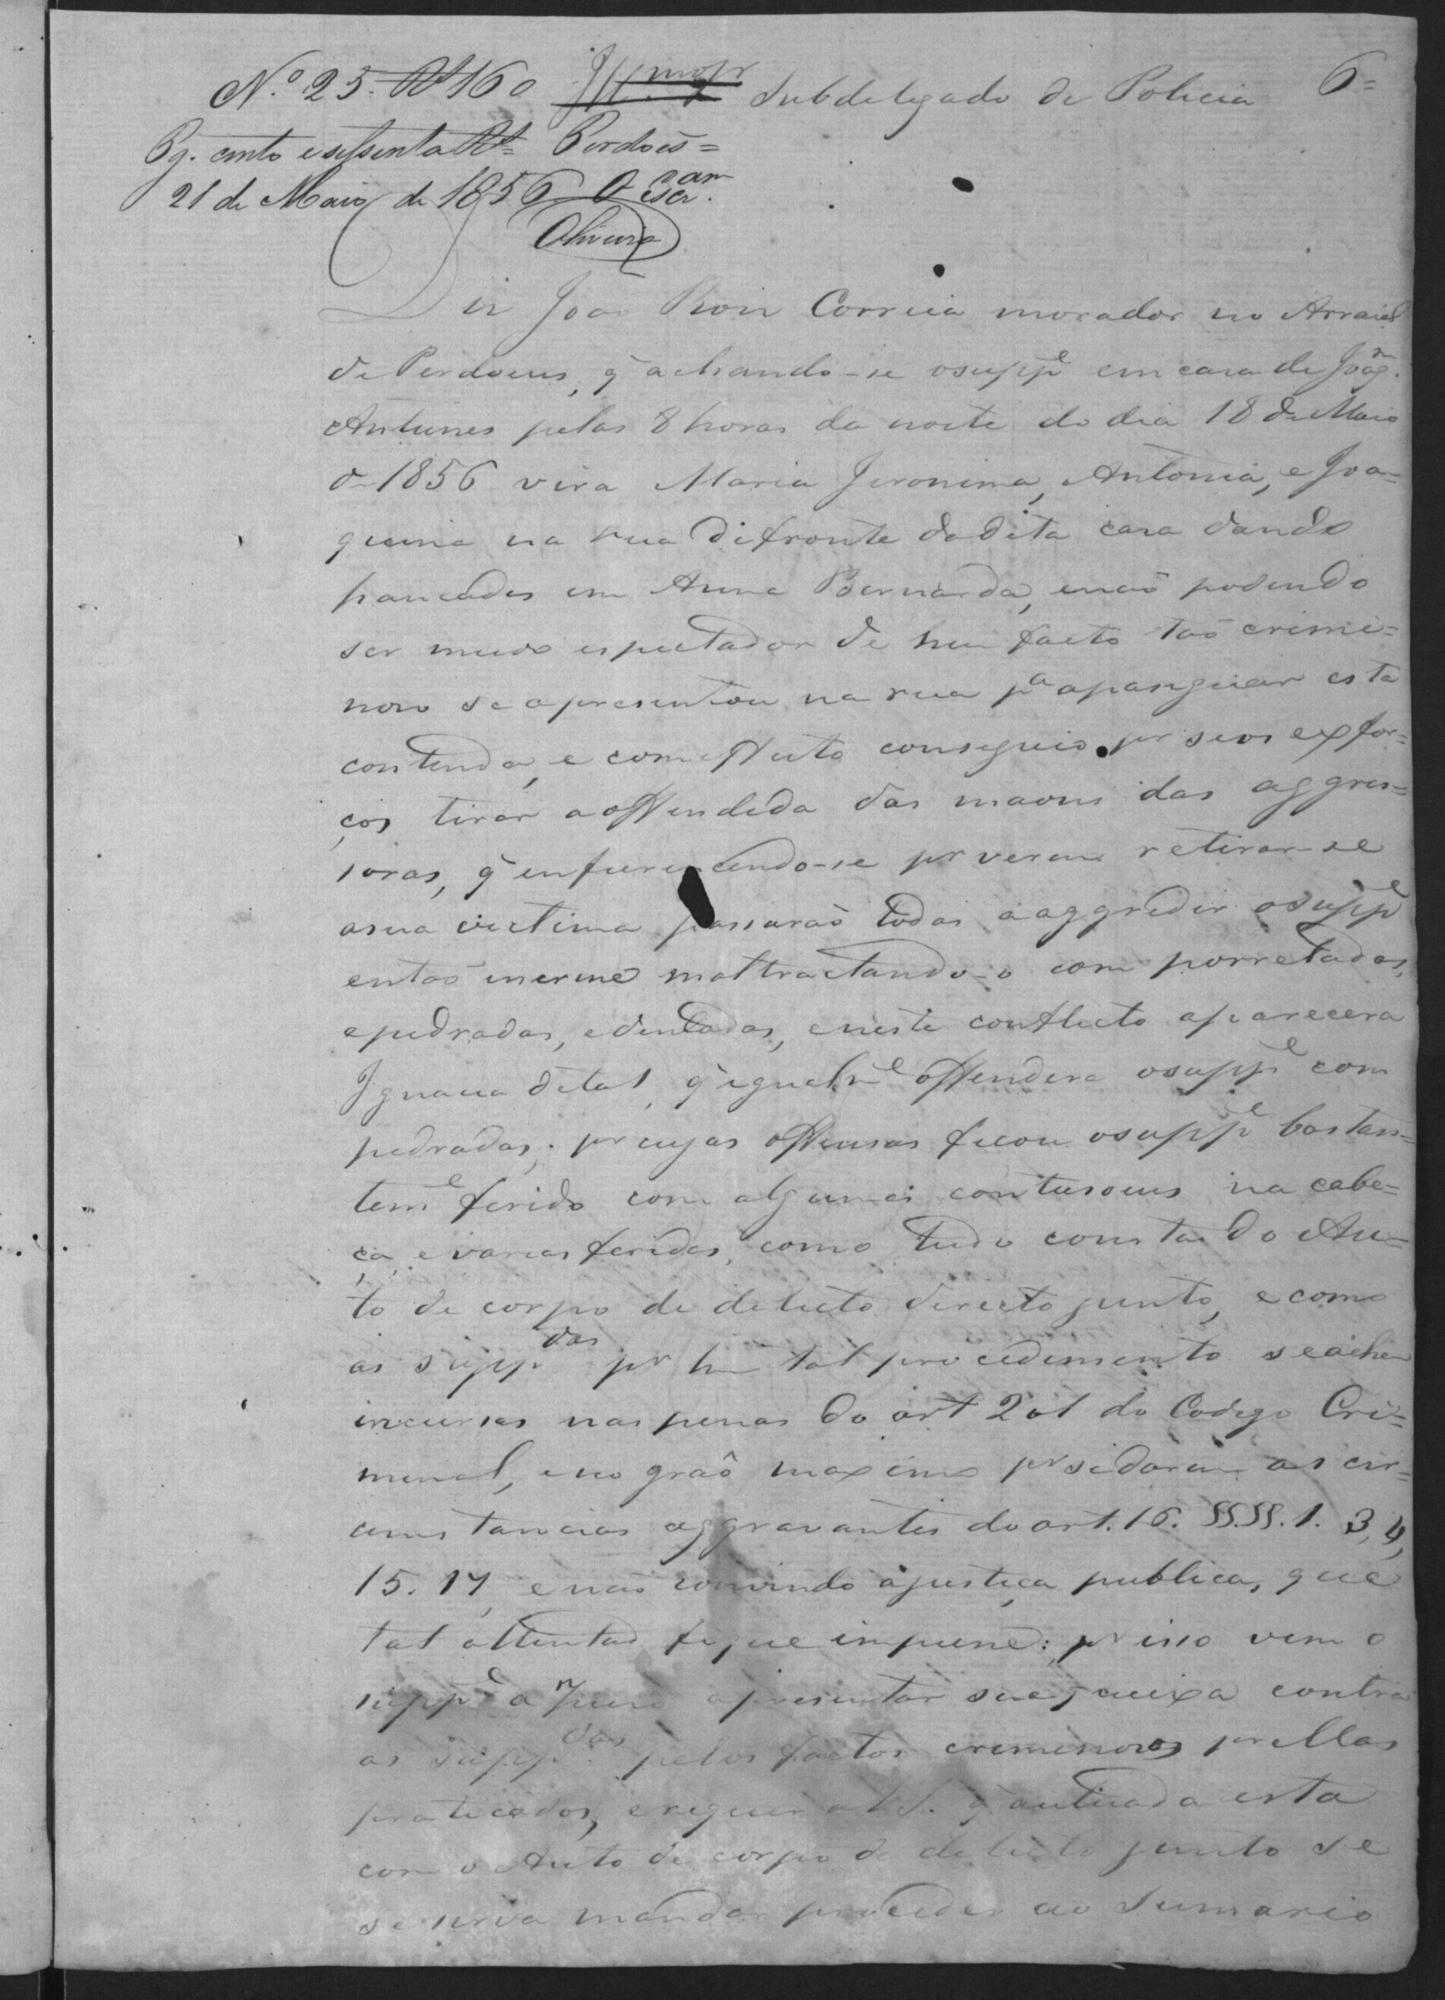 Nº 25. Rs 160 Subdelegado de Policia 6=
Pg. cento e sessenta Rs= Perdoẽs=
21 de Maio de 1856 O Escr.am
Oliveira
Diz João Correia morador no Arraial
de Perdoens, q̃ achando-se osuppe em casa de Joaq.m
Antunes pelas 8 horas da noite do dia 18 de Maio
de 1856 vira Maria Jeronima, Antonia, e Joa-
quina na rua difronte da dita casa dando
pancadas em Anna Bernarda, enaõ podendo
ser mudo espectador de hum facto taõ crimi=
noso se apresentou na rua pa apasiguar esta
contenda, e com effeito conseguio pr seos exfor=
ços tirar aoffendida das maons das aggres=
soras, q̃ enfurecendo-se pr verem retirar-se
asua victima passaraõ todas aaggredir osuppe
entaõ inerme maltractando-o com porretadas,
epedradas, edentadas, eneste conflicto aparecera
Ignacia detal, q̃ igualme offendera osuppe com
pedradas; pr cujas offensas ficou osuppe bastan=
teme ferido com algumas contusoens na cabe=
ça, evarias feridas, como tudo consta do Au=
to de corpo de delicto directo junto, ecomo
as suppdas pr hũ tal procedimento seachem
incursas nas penas do art 201 do Codigo Cri=
minal, eno graô maximo pr sedarem as cir=
cunstancias aggravantes do art. 16. §§.§§. 1. 3, 4,
15. 17, enaõ convindo ajustiça publica, que
tal attentado fique impune: pr isso vem o
suppe apresentar sua queixa contra
as suppdas pelos factos criminosos pr ellas
praticados, erequer a VS. q̃ autuada esta
com o Auto de corpo de delicto junto se
se sirva mandar proceder ao Sumario